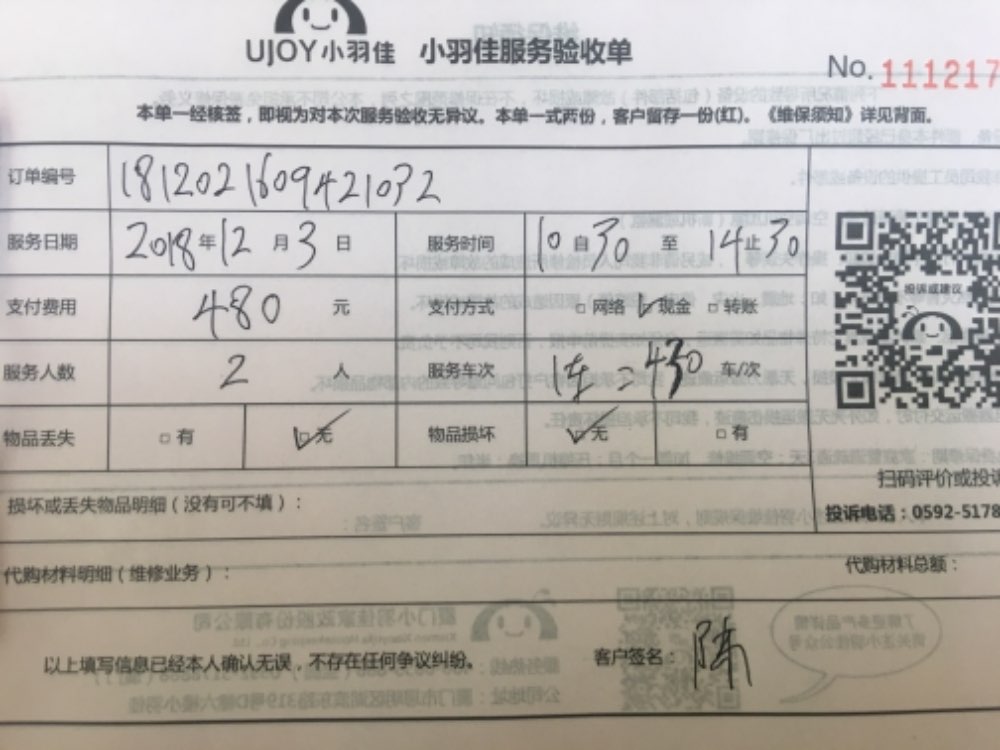 UJOY小羽佳 小羽佳服务验收单
No. 111217
本单一经核签，即视为对本次服务验收无异议。本单一式两份，客户留存一份(红)。《维保须知》详见背面。
订单编号 1812021609421032
服务日期 2018年12月3日 服务时间 10自30至14止30
支付费用 480元 支付方式 □网络 ☑现金 □转账
服务人数 2人 服务车次 1车=430 车/次
物品丢失 □有 ☑无 物品损坏 ☑无 □有
投诉或建议
扫码评价或投诉
损坏或丢失物品明细（没有可不填）：
投诉电话：0592-5178
代购材料明细（维修业务）： 代购材料总额：
以上填写信息已经本人确认无误，不存在任何争议纠纷。 客户签名：陈